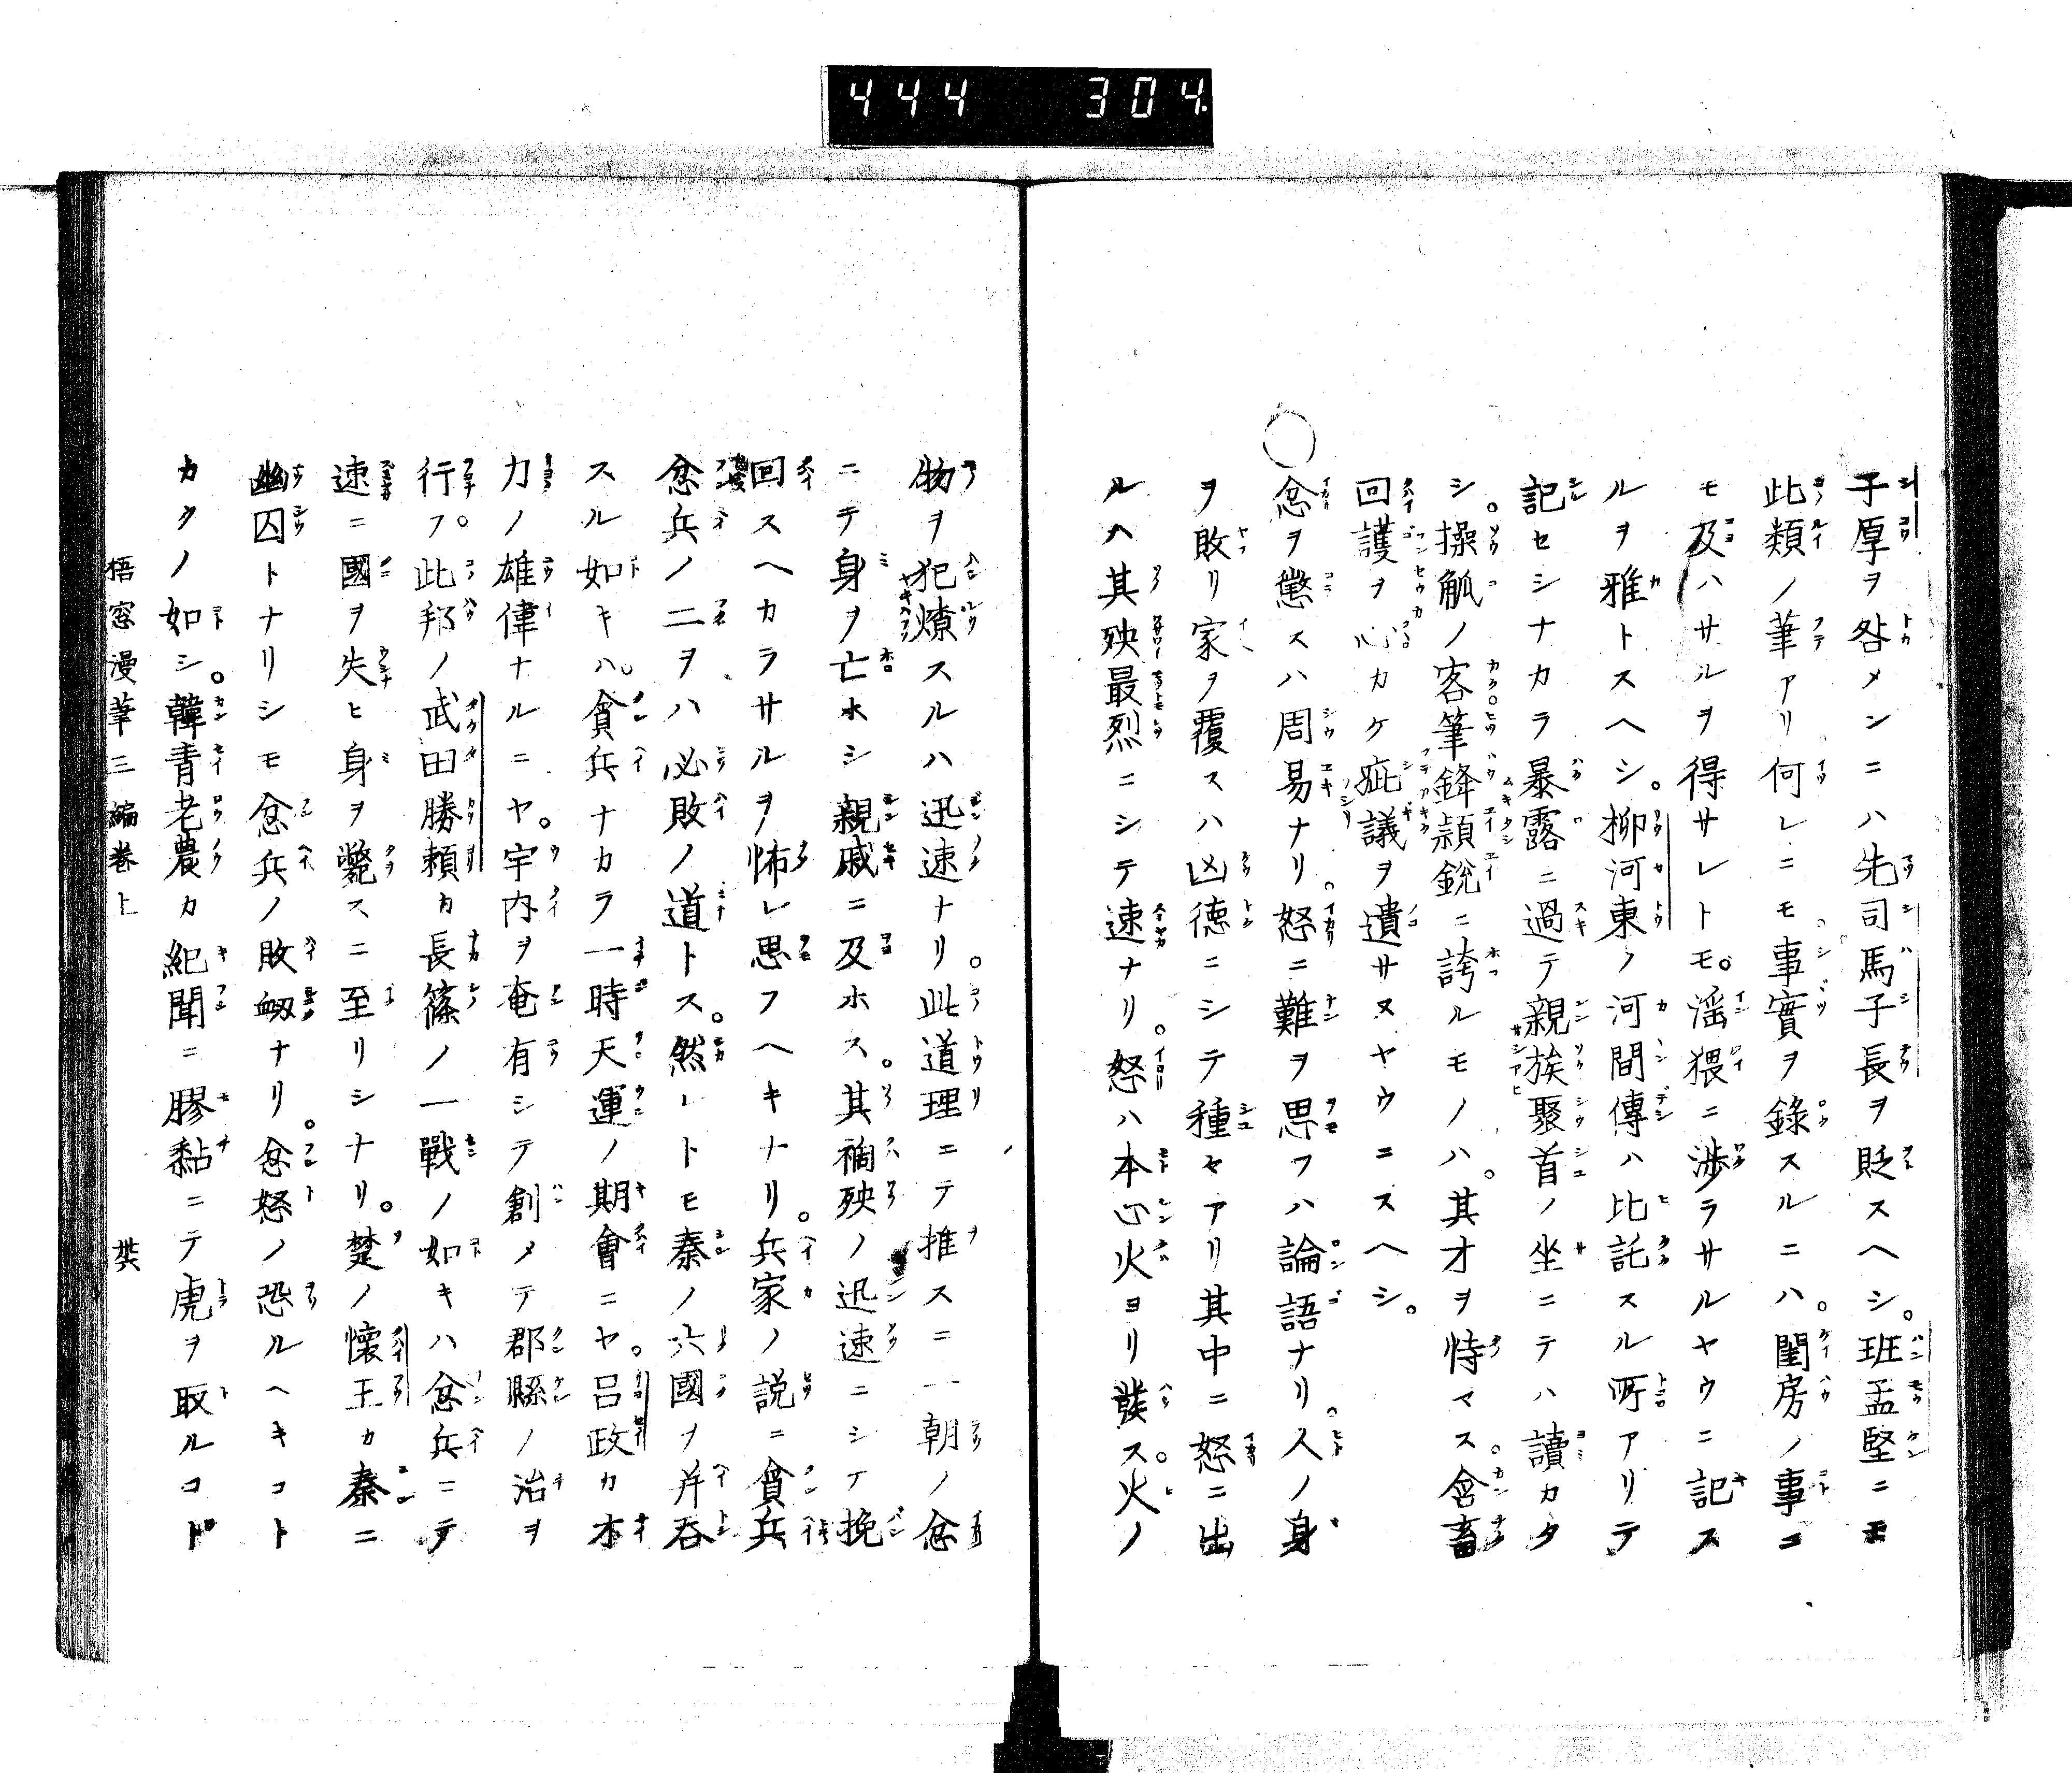 444 304
子厚ヲ咎メンニハ先司馬子長ヲ貶スヘシ。班孟堅ニモ
此類ノ筆アリ何レニモ事實ヲ錄スルニハ。閨房ノ事ニ
モ及ハサルヲ得サレトモ。淫猥ニ渉ラサルヤウニ記ス
ルヲ雅トスヘシ。柳河東ノ河間傳ハ比託スル所アリテ
記セシナカラ暴露ニ過テ親族聚首ノ坐ニテハ讀カタ
シ。操觚ノ客筆鋒頴鋭ニ誇ルモノハ。其才ヲ恃マス含畜
回護ヲ心カケ疵議ヲ遺サヌヤウニスヘシ。
忿ヲ懲スハ周易ナリ。怒ニ難ヲ思フハ論語ナリ。人ノ身
ヲ敗リ家ヲ覆スハ凶德ニシテ種々アリ其中ニ怒ニ出
ルハ其殃最烈ニシテ速ナリ。怒ハ本心火ヨリ發ス。火ノ
物ヲ犯燎スルハ迅速ナリ。此道理ニテ推スニ一朝ノ忿
ニテ身ヲ亡ホシ親戚ニ及ホス。其禍殃ノ迅速ニシテ挽
回スヘカラサルヲ怖レ思フヘキナリ。兵家ノ説ニ貪兵
忿兵ノ二ヲハ必敗ノ道トス。然レトモ秦ノ六國ヲ并呑
スル如キハ。貪兵ナカラ一時天運ノ期會ニヤ。呂政カ才
力ノ雄偉ナルニヤ。宇内ヲ奄有シテ創メテ郡縣ノ治ヲ
行フ。此邦ノ武田勝頼カ長篠ノ一戰ノ如キハ忿兵ニテ
速ニ國ヲ失ヒ身ヲ斃スニ至リシナリ。楚ノ懷王カ秦ニ
幽囚トナリシモ忿兵ノ敗衂ナリ。忿怒ノ恐ルヘキコト
カクノ如シ。韓青老農カ紀聞ニ膠黏ニテ虎ヲ取ルコト
梧窓漫筆三編卷上